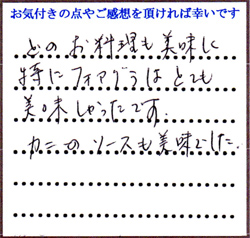 お気付きの点やご感想を頂ければ幸いです
どのお料理も美味しく
特にフォアグラはとても
美味しかったです.
カニのソースも美味でした.